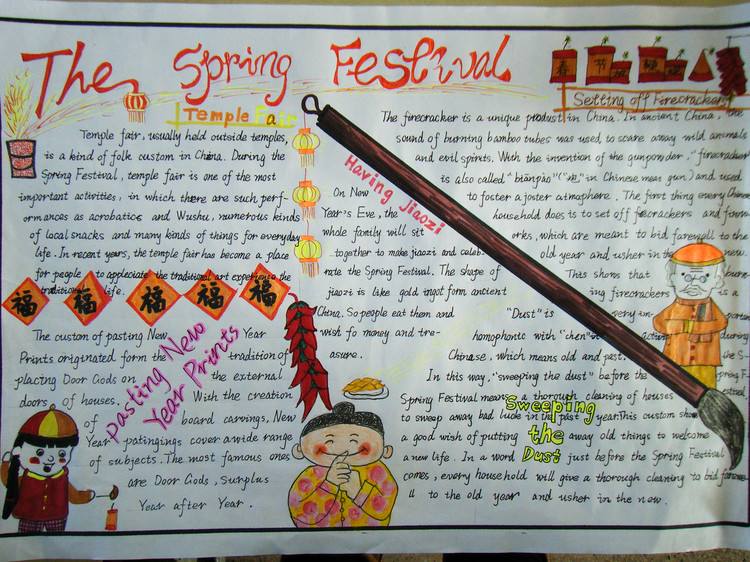 The Spring Festival
Temple Fair
Temple fair, usually held outside temples,
is a kind of folk custom in China. During the
Spring Festival, temple fair is one of the most
important activities, in which there are such perf-
ormances as acrobatics and Wushu, numerous kinds
of local snacks and many kinds of things for everyday
life. In recent years, the temple fair has become a place
for people to appreciate the traditional art experience the
traditional life.
福 福 福 福 福
Pasting New
Year Prints
The custom of pasting New Year
Prints originated form the tradition of
placing Door Gods on the external
doors, of houses. With the creation
of board carvings, New
Year patingings cover a wide range
of subjects. The most famous ones
are Door Gods, Surplus
Year after Year.
Having jiaozi
On New
Year's Eve, the
whole family will sit
together to make jiaozi and celeb-
rate the Spring Festival. The shape of
jiaozi is like gold ingot form ancient
China. So people eat them and
wish fo money and tre-
asure.
春 节
Setting off Firecrackers
The firecracker is a unique product in China. In ancient China, the
sound of burning bamboo tubes was used to scare away wild animals
and evil spirits. With the invention of the gunpowder, "firecracker
is also called "biānpào" ( in Chinese mean gun) and used
to foster a joster atmosphere. The first thing every Chinese
household does is to set off firecrackers and firew
orks, which are meant to bid farewell to the
old year and usher in the new.
This shows that burn
ing firecrackers is a
very im- portan
"Dust" is
homophonic with "chen" acting during
Chinese, which means old and past. the S
In this way, "sweeping the dust" before the
Spring Festival means a thorough cleaning of houses
to sweep away bad luck in the past year. This custom shows
a good wish of putting away old things to welcome
a new life. In a word just before the Spring Festival
comes, every household will give a thorough cleaning to bid farewe
ll to the old year and usher in the new.
Sweeping
the
Dust